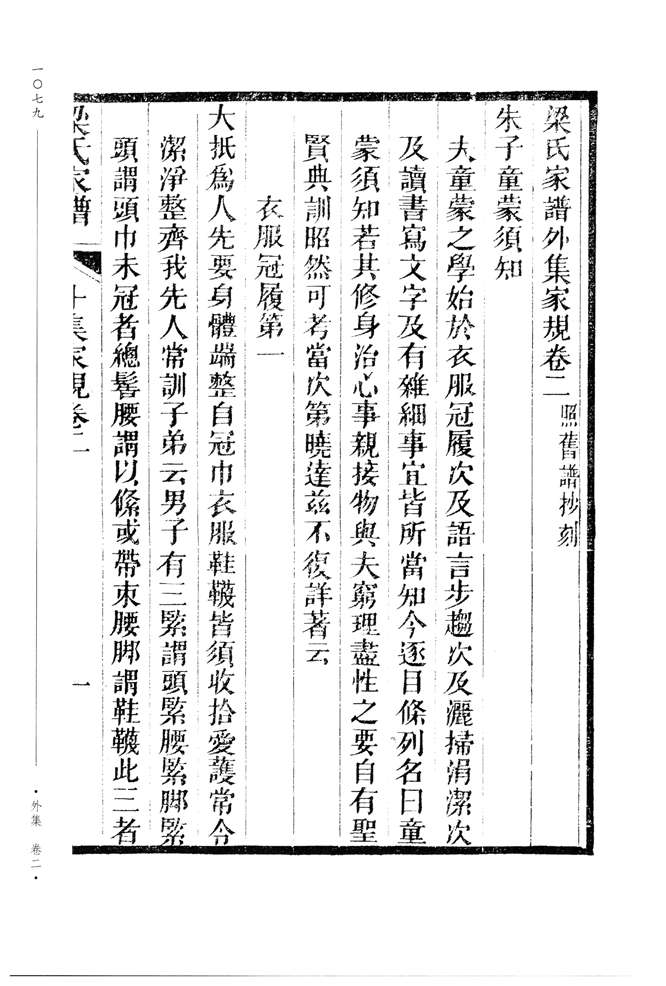 梁氏家譜外集家規卷二 照舊譜抄刻
朱子童蒙須知
夫童蒙之學始於衣服冠履次及語言步趨次及灑掃涓潔次
及讀書寫文字及有雜細事宜皆所當知今逐目條列名曰童
蒙須知若其修身治心事親接物與夫窮理盡性之要自有聖
賢典訓昭然可考當次第曉達兹不復詳著云
衣服冠履第一
大抵爲人先要身體端整自冠巾衣服鞋韈皆須收拾愛護常令
潔淨整齊我先人常訓子弟云男子有三緊謂頭緊腰緊脚緊
頭謂頭巾未冠者總髻腰謂以絛或帶束腰脚謂鞋韈此三者
梁氏家譜 集家規卷二 一
一〇七九
·外集 卷二·